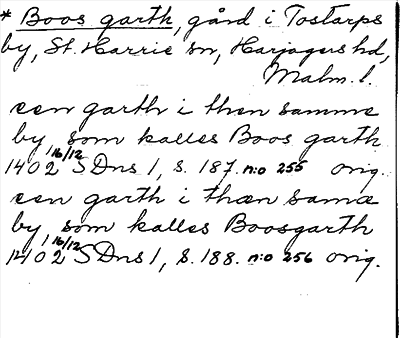 * Boos garth, gård i Tostarps
by, St. Harrie sn, Harjagers hd,
Malm. l.
een garth i then samme
by, som kalles Boos garth
1402 16/12 SDns 1, s. 187. n:o 255 orig.
een garth i thæn samæ
by, som kalles Boosgarth
1402 16/12 SDns 1, s. 188. n:o 256 orig.